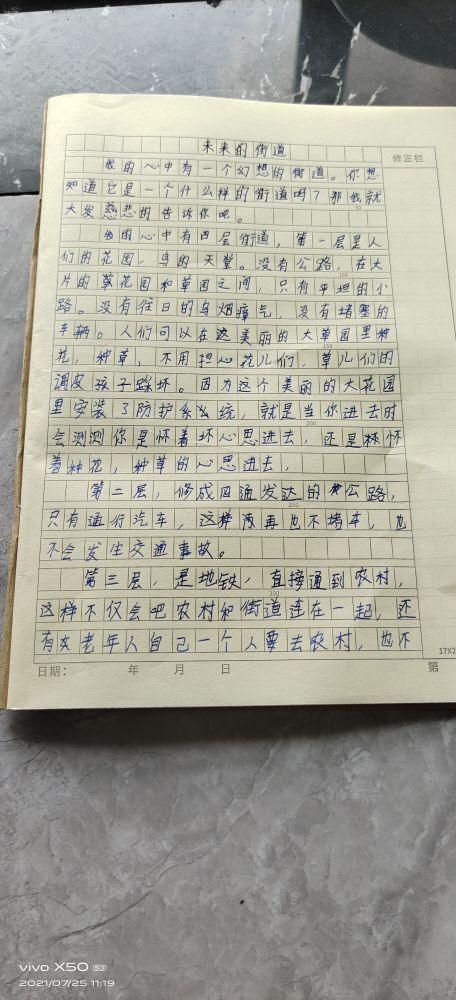 未来的街道
修正栏
我的心中有一个幻想的街道。你想
知道它是一个什么样的街道吗？那我就
大发慈悲的告诉你吧。
50
我的心中有四层街道，第一层是人
们的花园，鸟的天堂。没有公路，在大
100
片的草花园和草园之间，只有平坦的小
路。没有往日的乌烟瘴气，没有堵塞的
车辆。人们可以在这美丽的大草园里种
150
花，种草，不用担心花儿们，草儿们的
调皮孩子踩坏。因为这个美丽的大花园
里安装了防护系统，就是当你进去时
200
会测测你是怀着坏心思进去，还是怀
着种花，种草的心思进去，
第二层，修成四通发达的公路，
250
只有通行汽车，这样再也不堵车，也
不会发生交通事故。
第三层，是地铁，直接通到农村，
300
这样不仅会吧农村和街道连在一起，还
有老年人自己一个人要去农村，也不
17X2
日期： 年 月 日 第
vivo X50 5G
2021/07/25 11:19